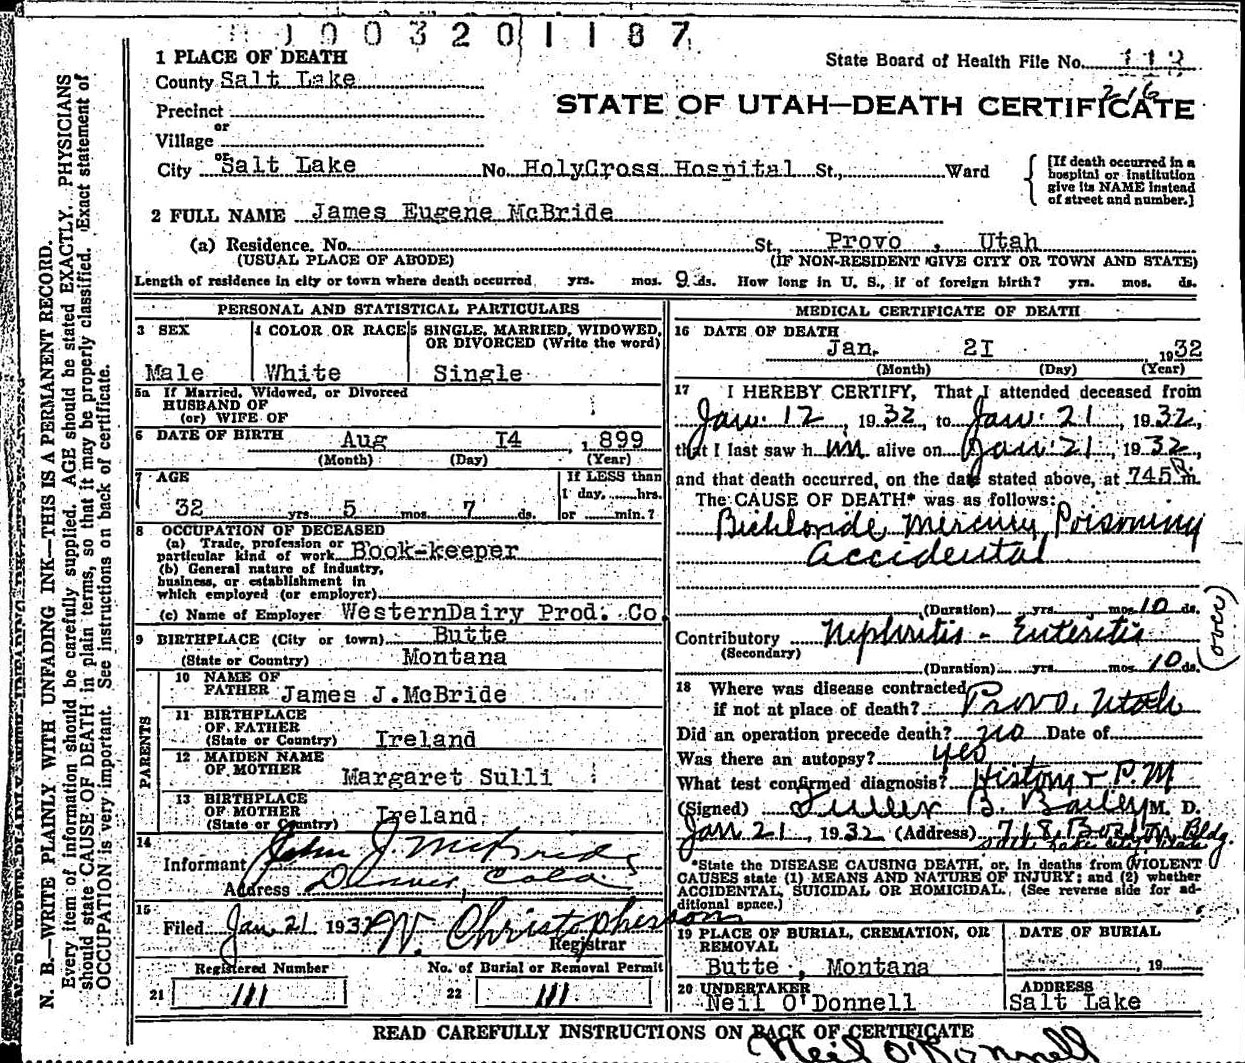 1003201187
1 PLACE OF DEATH
State Board of Health File No. 113
County Salt Lake
216
STATE OF UTAH—DEATH CERTIFICATE
Precinct
or
Village
or
City Salt Lake No. HolyCross Hospital St., Ward
[If death occurred in a
hospital or institution
give its NAME instead
of street and number.]
2 FULL NAME James Eugene McBride
(a) Residence. No. St. Provo , Utah
(USUAL PLACE OF ABODE) (IF NON-RESIDENT GIVE CITY OR TOWN AND STATE)
Length of residence in city or town where death occurred yrs. mos. 9 ds. How long in U. S., if of foreign birth? yrs. mos. ds.
PERSONAL AND STATISTICAL PARTICULARS
3 SEX
Male
4 COLOR OR RACE
White
5 SINGLE, MARRIED, WIDOWED,
OR DIVORCED (Write the word)
Single
5a If Married, Widowed, or Divorced
HUSBAND OF
(or) WIFE OF
6 DATE OF BIRTH Aug I4 , 899
(Month) (Day) (Year)
7 AGE
If LESS than
1 day, hrs.
or min.?
32 yrs. 5 mos. 7 ds.
8 OCCUPATION OF DECEASED
(a) Trade, profession or
particular kind of work Book-keeper
(b) General nature of industry,
business, or establishment in
which employed (or employer)
(c) Name of Employer WesternDairy Prod. Co.
9 BIRTHPLACE (City or town) Butte
(State or Country) Montana
PARENTS
10 NAME OF
FATHER James J.McBride
11 BIRTHPLACE
OF FATHER
(State or Country) Ireland
12 MAIDEN NAME
OF MOTHER Margaret Sulli
13 BIRTHPLACE
OF MOTHER
(State or Country) Ireland
14
Informant John J McBride
Address Denver Colo
15
Filed Jan 21 1932 W. Christopherson
Registrar
Registered Number No. of Burial or Removal Permit
21 111 22 111
MEDICAL CERTIFICATE OF DEATH
16 DATE OF DEATH
Jan. 2I 1932
(Month) (Day) (Year)
17 I HEREBY CERTIFY, That I attended deceased from
Jan. 12, 1932, to Jan. 21, 1932,
that I last saw him alive on Jan. 21, 1932,
and that death occurred, on the date stated above, at 745 P m.
The CAUSE OF DEATH* was as follows:
Bichloride Mercury Poisoning
accidental
(Duration) yrs. mos. 10 ds.
(over)
Contributory Nephritis - Enteritis
(Secondary)
(Duration) yrs. mos. 10 ds.
18 Where was disease contracted
if not at place of death? Provo, Utah
Did an operation precede death? no Date of
Was there an autopsy? yes
What test confirmed diagnosis? History & P.M
(Signed) Fuller B. Bailey M. D.
Jan 21, 1932 (Address) 718 Boston Bldg.
Salt Lake City, Utah
*State the DISEASE CAUSING DEATH, or, in deaths from VIOLENT
CAUSES state (1) MEANS AND NATURE OF INJURY; and (2) whether
ACCIDENTAL, SUICIDAL OR HOMICIDAL. (See reverse side for ad-
ditional space.)
19 PLACE OF BURIAL, CREMATION, OR
REMOVAL
Butte , Montana
DATE OF BURIAL
, 19
20 UNDERTAKER
Neil O'Donnell
ADDRESS
Salt Lake
READ CAREFULLY INSTRUCTIONS ON BACK OF CERTIFICATE
Neil O'Donnell
N. B.—WRITE PLAINLY WITH UNFADING INK—THIS IS A PERMANENT RECORD.
Every item of information should be carefully supplied. AGE should be stated EXACTLY. PHYSICIANS
should state CAUSE OF DEATH in plain terms, so that it may be properly classified. Exact statement of
OCCUPATION is very important. See instructions on back of certificate.